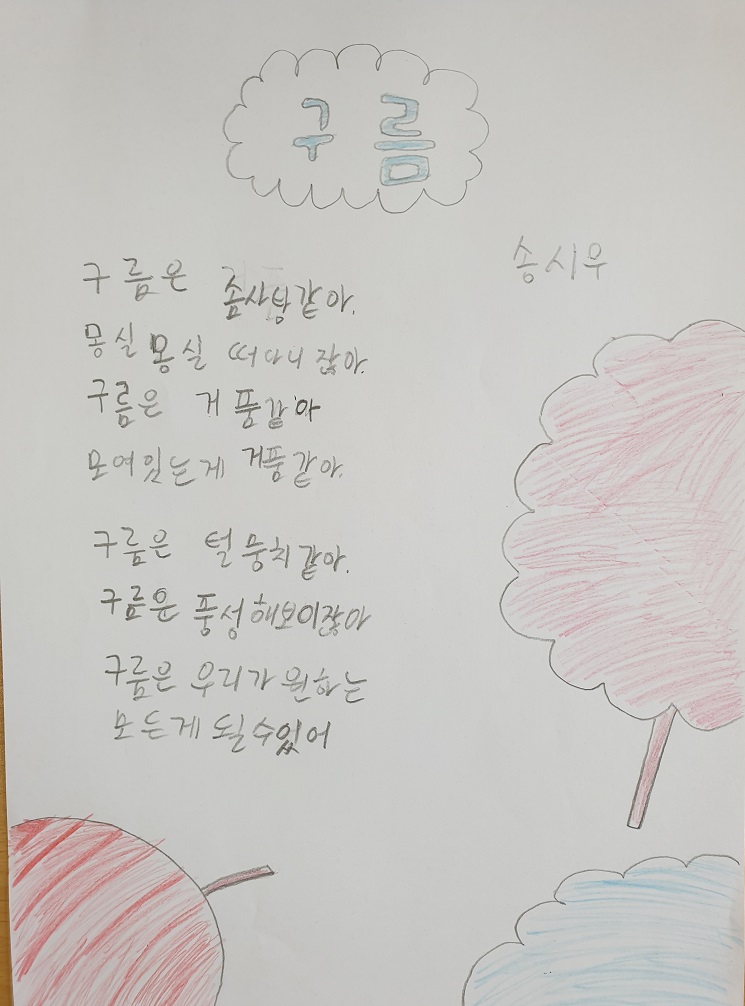 구름
송시우
구름은 솜사탕같아.
몽실 몽실 떠다니 잖아.
구름은 거품같아
모여있는게 거품같아.
구름은 털뭉치같아.
구름은 풍성해보이잖아
구름은 우리가 원하는
모든게 될수있어